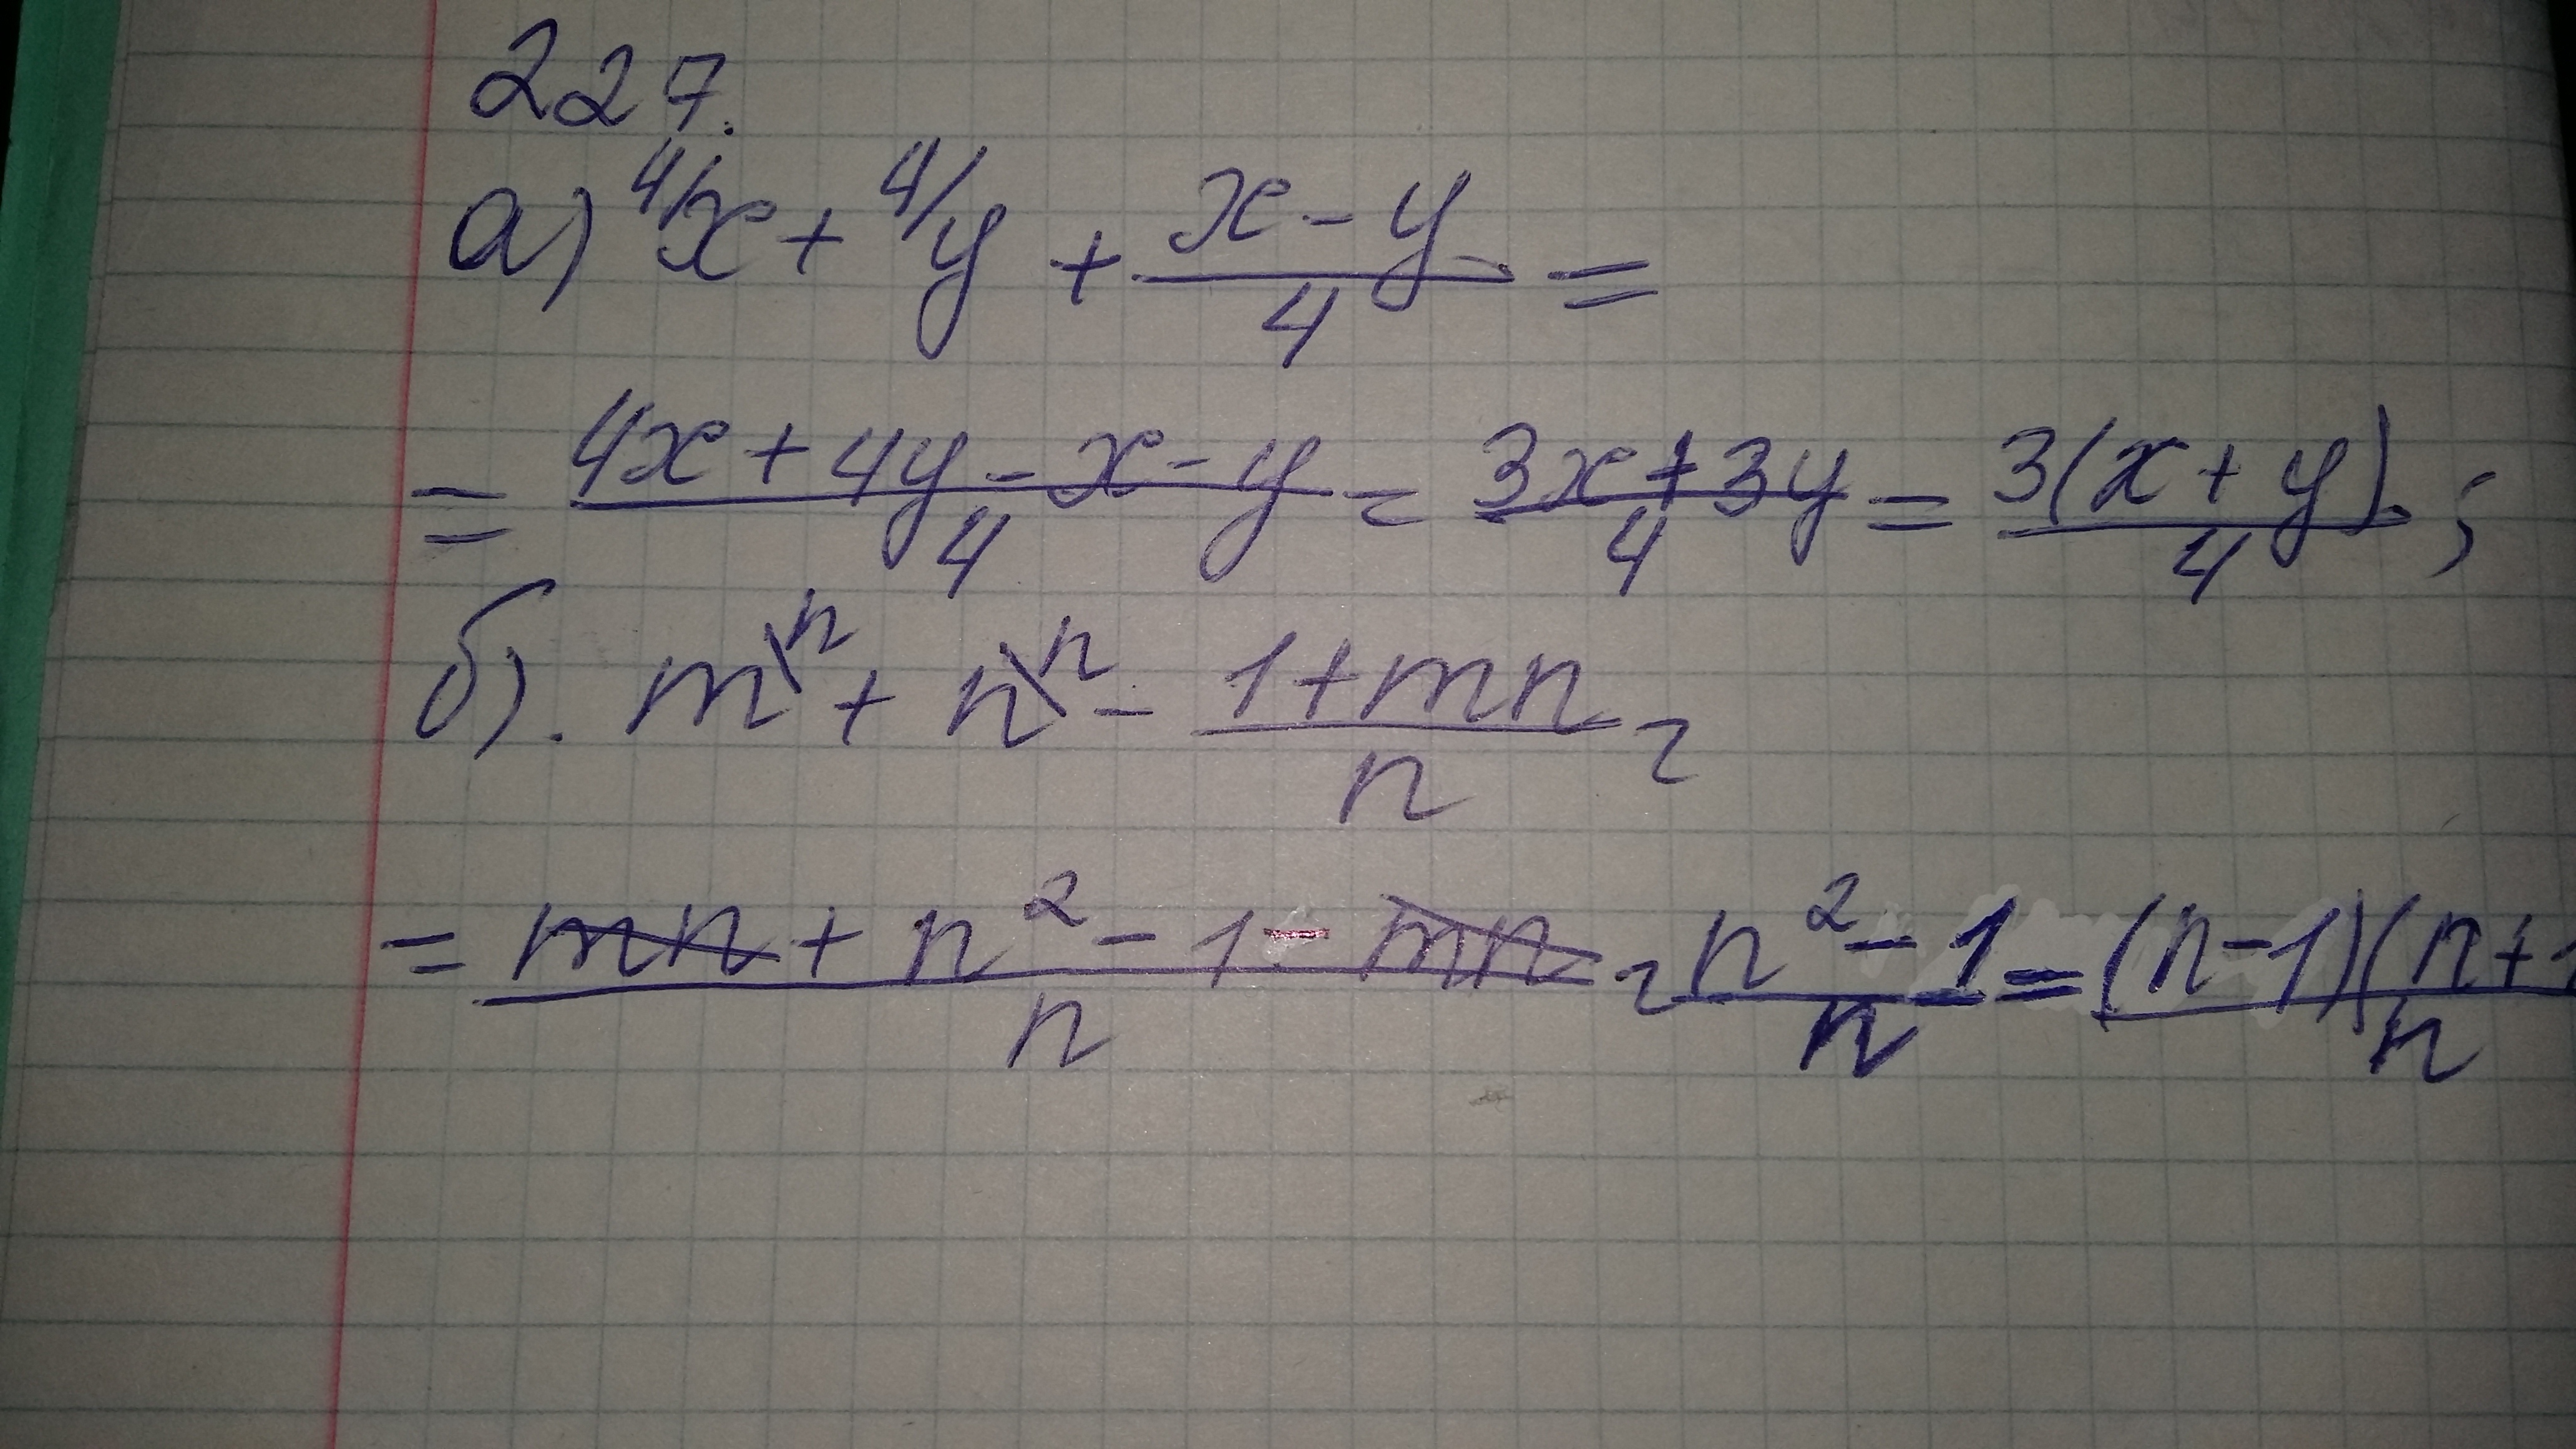 227.
а) ⁴/x + ⁴/y + (x - y)/4 =
= (4x + 4y - x - y)/4 = (3x + 3y)/4 = (3(x + y))/4 ;
б). m\ⁿ + n\ⁿ - (1 + mn)/n =
= (mn + n² - 1 - mn)/n = (n² - 1)/n = (n-1)(n+1/n